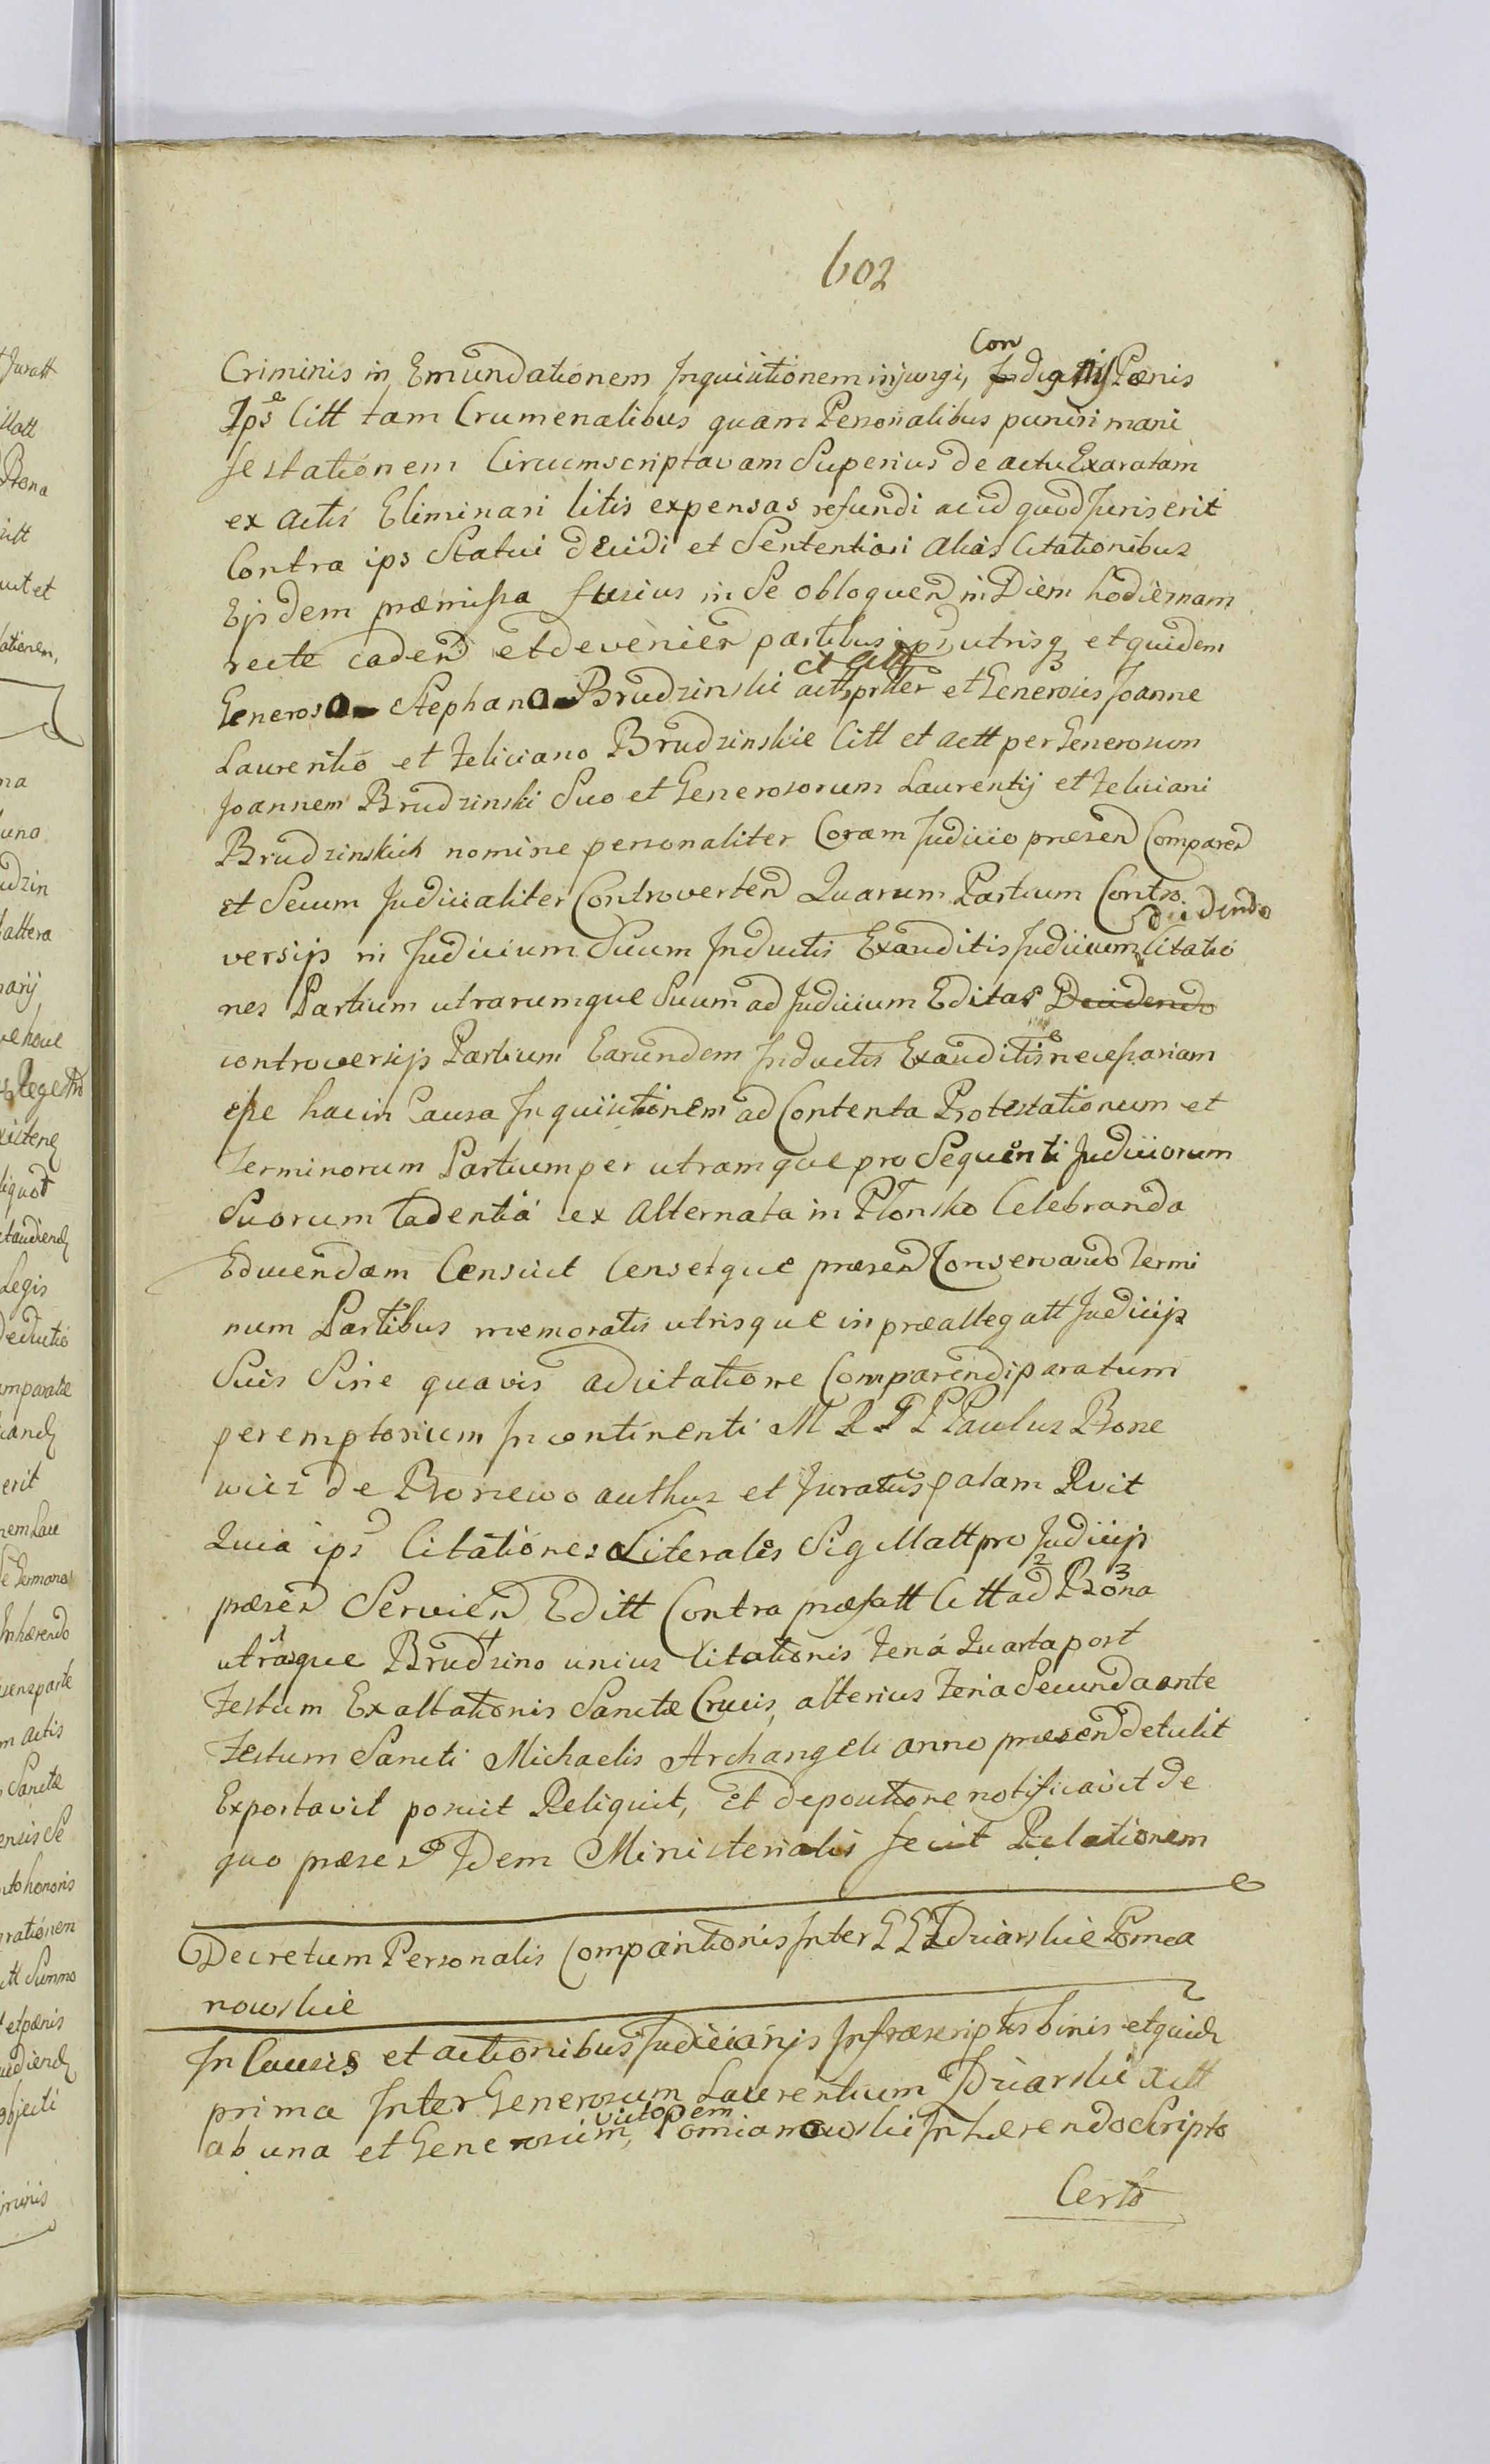 602
Con
Criminis in Emundationem Inquisitionem injungi, Indignis Pœnis
Ips Citt tam Crumenalibus quam Personalibus puniri mani
festationem Circumscriptavam Superius de actu Exaratam
ex actis Eliminari litis expensas refundi ac id quod Juris erit
Contra ips Statui decidi et Sententiari alias Citationibus
Ejsdem præmissa fusius in Se obloquen in Diem hodiernam
recte caden et devenien partibus ips utrisq et quidem
et Citt
Generoso Stephano Brudzinski actt prller et Generosis Joanne
Laurentio et Feliciano Brudzinskie Citt et actt per Generosum
Joannem Brudzinski Suo et Generosorum Laurentij et Feliciani
Brudzinskich nomine personaliter Coram Judicio præsen Comparen
et Secum Judicialiter Controverten Quarum Partium Contro
decidendo
versijs in Judicium Suum Inductis Exauditis Judicium Citatio
nes Partium utrarumque Suum ad Judicium Editas Decidendo
controversijs Partium Earundem Inductis Exauditis necessariam
esse hac in Causa Inquisitionem ad Contenta Protestationum et
Terminorum Partium per utramque pro Sequenti Judiciorum
Suorum Cadentia ex Alternata in Płonsko Celebranda
Educendam Censuit Censetque præsen Conservando Termi
num Partibus memoratis utrisque in præallegatt Judicijs
Suis Sine quavis adcitatione Comparendi paratum
peremptorium In continenti M R T P Paulus Brone
wicz de Bronewo authus et Juratus palam Rvit
Quia ips Citationes Literales Sigillatt pro Judicijs
præsen Servien Editt Contra præfatt Citt ad Bona
utrasque Brudzino unius Citationis Feria Quarta post
Festum Exaltationis Sanctæ Crucis, alterius Feria Secunda ante
Festum Sancti Michaelis Archangeli anno præsen detulit
Exportavit posuit Reliquit, Et depositione notificavit de
quo præsen Idem Ministerialis fecit Relationem
Decretum Personalis Comparitionis Inter G G Dziarskie Pomia
nowskie
In Causis et actionibus Judiciarijs Infrascriptis binis et quid
prima Inter Generosum Laurentium Dziarski actt
ab una et Generosum, Victorem Pomianowski Inhærendo Scripto
Certo